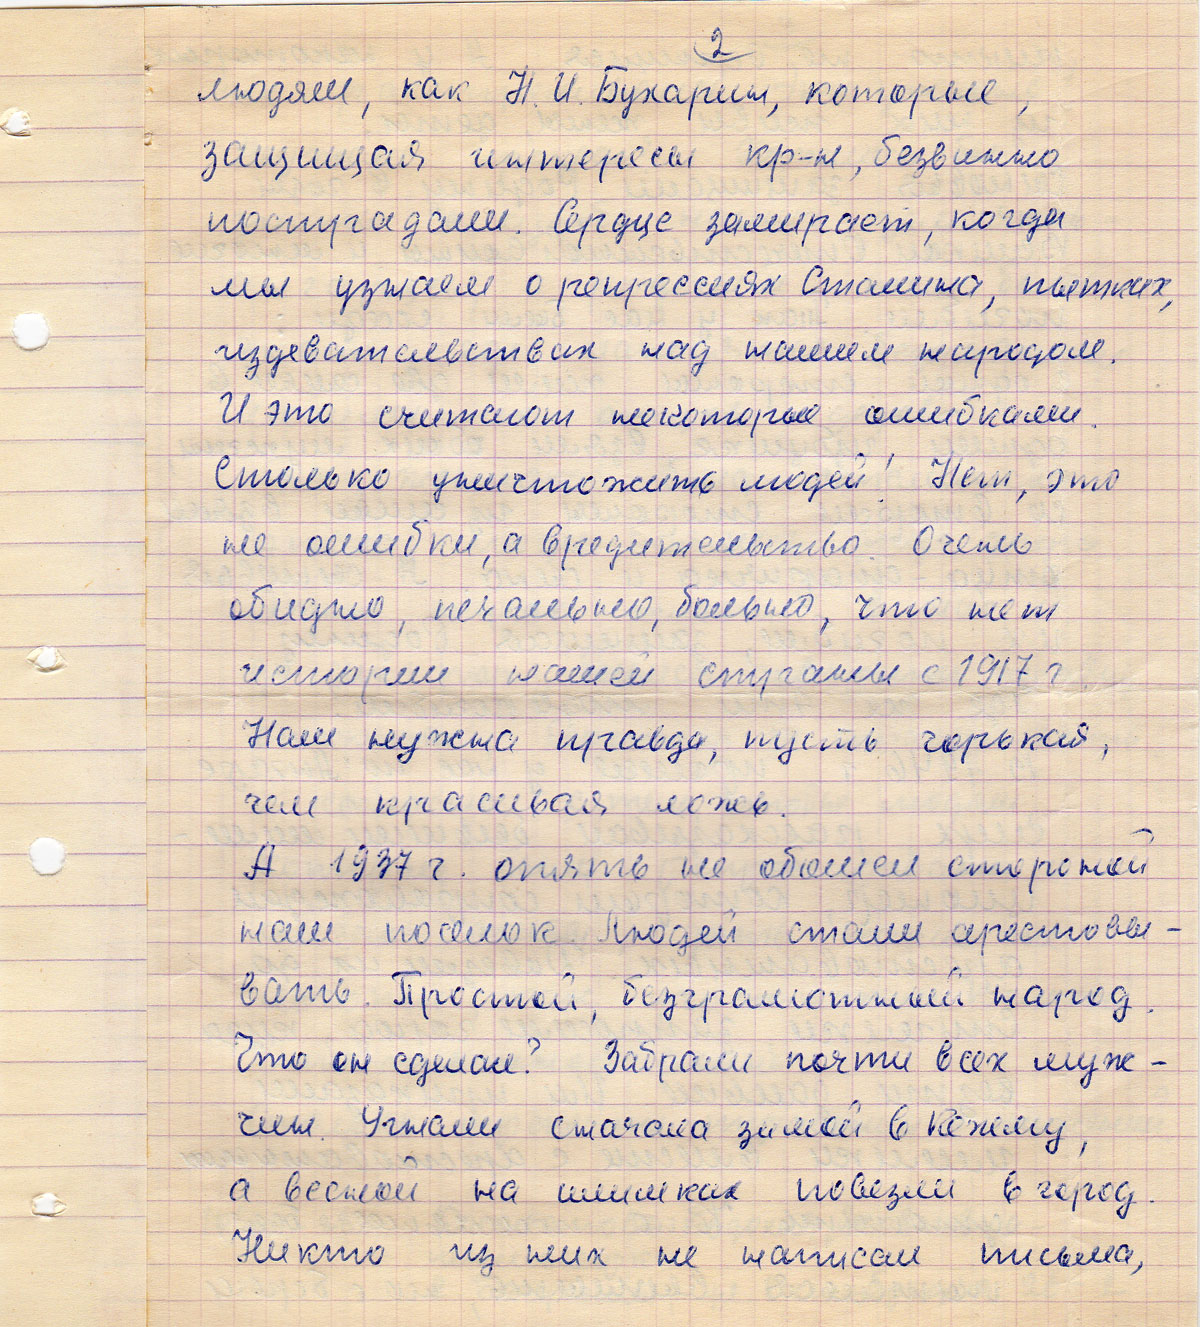 2
людям, как Н. И. Бухарин, которые,
защищая интересы кр-н, безвинно
пострадали. Сердце замирает, когда
мы узнаем о репрессиях Сталина, пытках,
издевательствах над нашим народом.
И это считают некоторые ошибками.
Столько уничтожить людей! Нет, это
не ошибки, а вредительство. Очень
обидно, печально, больно, что нет
истории нашей страны с 1917 г.
Нам нужна правда, пусть горькая,
чем красивая ложь.
А 1937 г. опять не обошел стороной
наш поселок. Людей стали арестовы-
вать. Простой, безграмотный народ.
Что он сделал? Забрали почти всех муж-
чин. Угнали сначала зимой в Кежму,
а весной на илимках повезли в город.
Никто из них не написал письма,